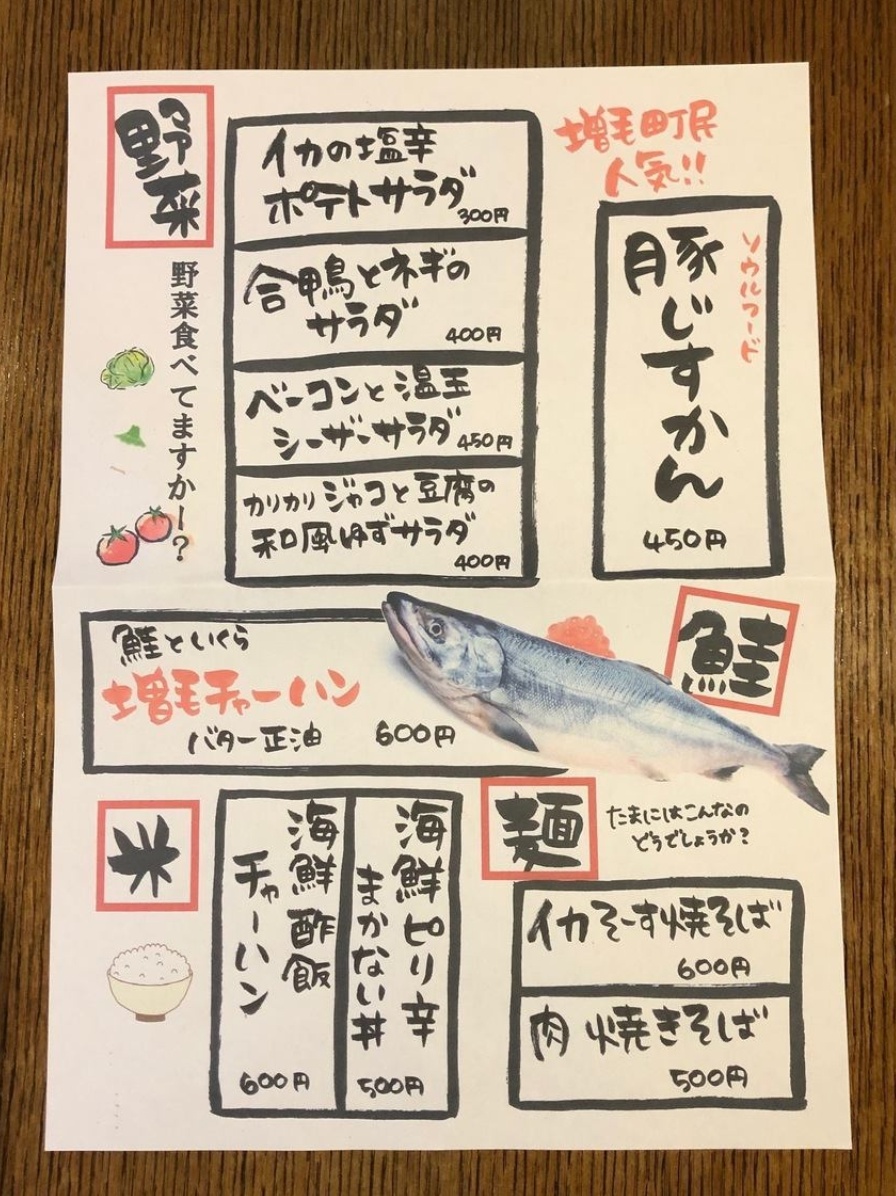 野菜
野菜食べてますかー？
イカの塩辛
ポテトサラダ
300円
合鴨とネギの
サラダ
400円
ベーコンと温玉
シーザーサラダ
450円
カリカリジャコと豆腐の
和風ゆずサラダ
400円
増毛町民
人気!!
ソウルフード
豚じすかん
450円
鮭
鮭といくら
増毛チャーハン
バター正油 600円
米
海鮮ピリ辛
まかない丼
500円
海鮮酢飯
チャーハン
600円
麺
たまにはこんなの
どうでしょうか？
イカそーす焼そば
600円
肉焼きそば
500円